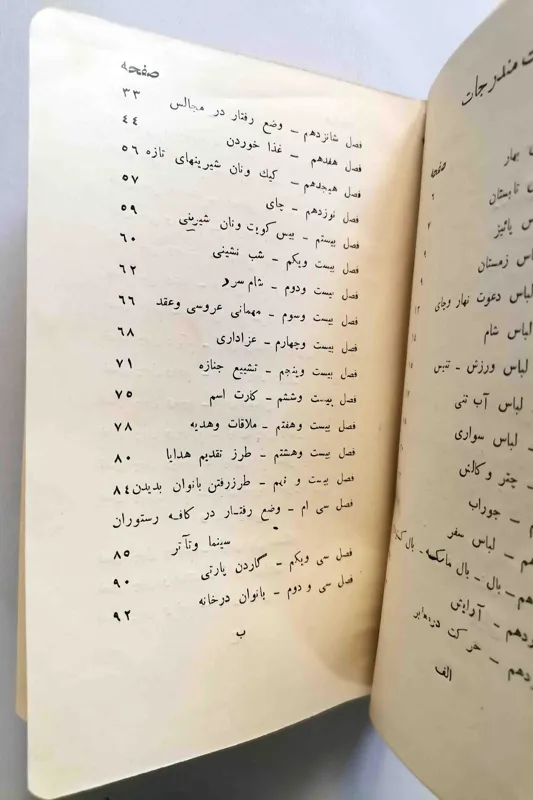 ت مندرجات
صفحه
بهار
۶
تابستان
۷
پائیز
۹
س زمستان
۹
لباس دعوت نهار وچای
۱۳
لباس شام
۱۴
لباس ورزش - تنیس
۱۵
لباس آب تنی
لباس سواری
چتر و کالش
م - جوراب
هم - لباس سفر
هم - بال - بال ماسکه - بال
دهم - آرایش
زدهم - حرکت در
الف
صفحه
فصل شانزدهم - وضع رفتار در مجالس ۳۳
فصل هفدهم - غذا خوردن ۴۴
فصل هیجدهم - کیك ونان شیرینهای تازه ۵۶
فصل نوزدهم - چای ۵۷
فصل بیستم - بیس کویت ونان شیرینی ۵۹
فصل بیست ویکم - شب نشینی ۶۰
فصل بیست ودوم - شام سرد ۶۲
فصل بیست وسوم - مهمانی عروسی وعقد ۶۶
فصل بیست وچهارم - عزاداری ۶۸
فصل بیست وپنجم - تشییع جنازه ۷۱
فصل بیست وششم - کارت اسم ۷۵
فصل بیست وهفتم - ملاقات وهدیه ۷۸
فصل بیست وهشتم - طرز تقدیم هدایا ۸۰
فصل بیست و نهم - طرزرفتن بانوان بدیدن ۸۴
فصل سی ام - وضع رفتار در کافه رستوران
سینما وتآتر ۸۵
فصل سی ویکم - گاردن پارتی ۹۰
فصل سی و دوم - بانوان درخانه ۹۲
ب